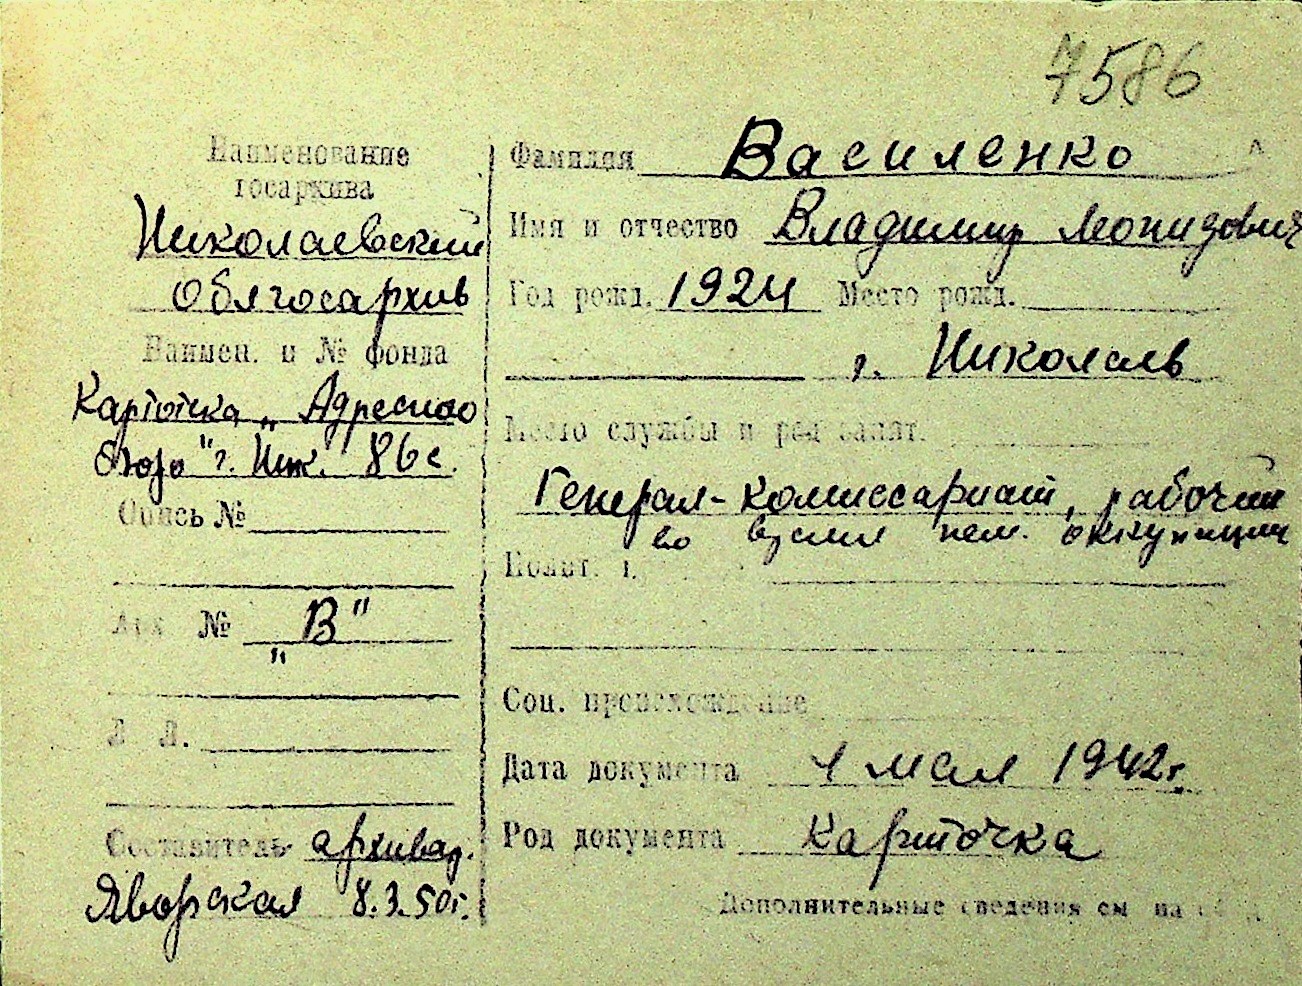 7586
Наименование
госархива
Николаевский
Облгосархив
Наимен. и № фонда
Картотека „Адресно
бюро" г. Ник. 86 с.
Опись №
Арх. № „В"
"
Л. Л.
Составитель архивар.
Яворская 8.3.50г.
Фамилия Василенко
Имя и отчество Владимир Леонидович
Год рожд. 1924 Место рожд.
г. Николаев
Место службы и род занят.
Генерал-комиссариат, рабочий
во время нем. оккупации
Полит.
Соц. происхождение
Дата документа 1 мая 1942г.
Род документа Карточка
Дополнительные сведения см на